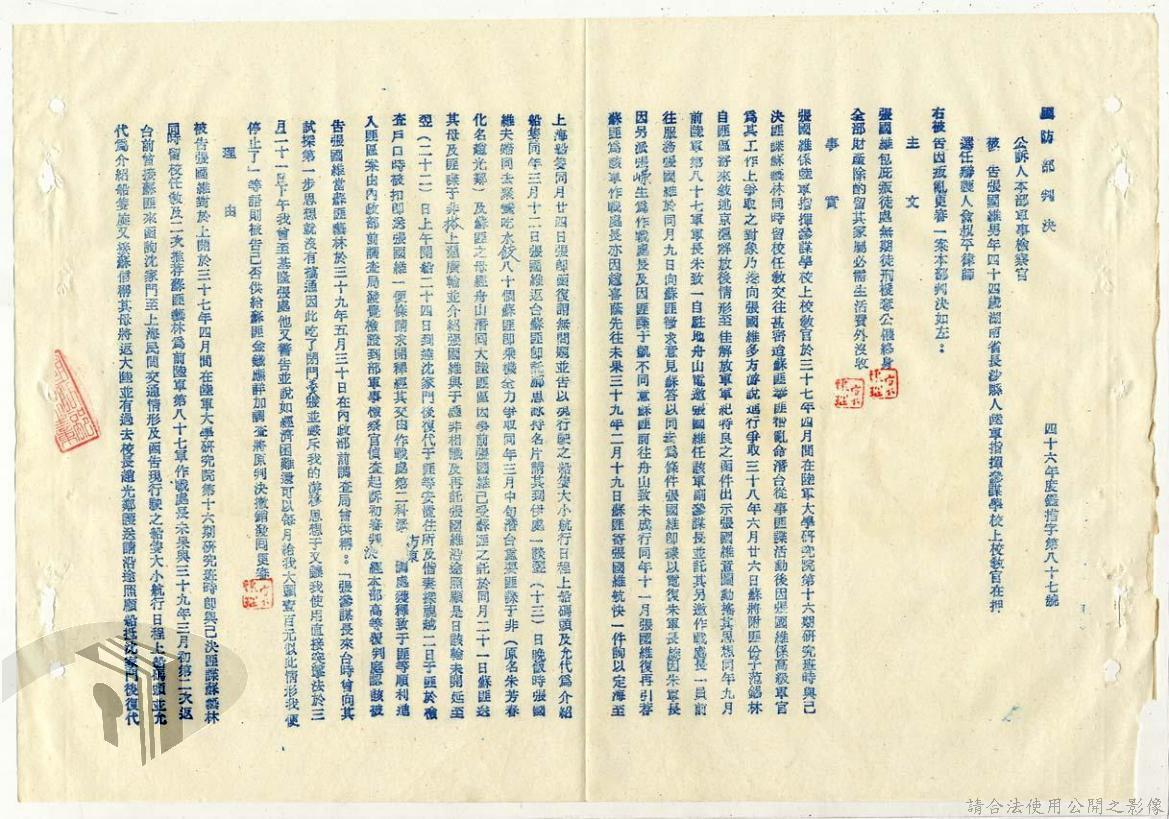 國防部判決　四十六年度鑑指字第八十七號
公訴人本部軍事檢察官
被　告張國維男年四十四歲湖南省長沙縣人陸軍指揮參謀學校上校教官在押
選任辯護人俞叔平律師
右被告因叛亂更審一案本部判決如左：
主　文
張國維包庇叛徒處無期徒刑褫奪公權終身
全部財產除酌留其家屬必需生活費外沒收
事　實
張國維係陸軍指揮參謀學校上校教官於三十七年四月間在陸軍大學研究院第十六期研究班時與已
決匪諜蘇藝林同時留校任教交往甚密迨蘇匪奉匪指亂命潛台從事匪諜活動後因張國維係高級軍官
為其工作上爭取之對象乃迭向張國維多方游說進行爭取三十八年六月廿六日蘇將附匪份子范錫林
自匪區寄來敘述京滬解放後情形至佳解放軍軍紀特良之函件出示張國維意圖動搖其思想同年九月
前陸軍第八十七軍軍長朱致一自駐地舟山電邀張國維任該軍副參謀長並託其另邀作戰處長一員前
往服務張國維於同月九日向蘇匪徵求意見蘇答以同去為條件張國維即據以電復朱軍長旋因朱軍長
因另派張嶑生為作戰處長及因匪諜于非不同意蘇匪前往舟山致未成行同年十一月張國維復再引荐
蘇匪為該軍作戰處長亦因趙喜蔭先往未果三十九年二月十九日蘇匪寄張國維航快一件詢以定海至
上海船隻同月廿四日張即函復謂無問題並告以現行駛之船隻大小航行日程上船碼頭及允代為介紹
船隻同年三月十二日張國維返台蘇匪即託鄺思詠持名片請其到伊處一談翌（十三）日晚飯時張國
維夫婦同去梁家吃水餃八十個蘇匪即乘機全力爭取同年三月中旬潛台重要匪諜于非（原名朱芳春
化名趙光鄰）及蘇匪之母經舟山潛回大陸匪區因事前張國維已受蘇匪之託於同月二十一日蘇匪送
其母及匪諜于非搭上滬廣輪並介紹張國維與于匪非相識及再託張國維沿途照顧是日該輪未開延至
翌（二十二）日上午開給二十四日到達沈家門後復代于匪等安置住所及偕妻探視越二日于匪於檢
查戶口時被扣即送張國維一便條請求開釋經其交由作戰處第二科梁方東調處獲釋致于匪等順利進
入匪區案由內政部前調查局發覺檢證到部軍事檢察官偵查起訴初審判決經本部高等覆判庭認該被
告張國維當蘇匪藝林於三十九年五月三十日在內政部前調查局曾供稱：「張參謀長來台時曾向其
試探第一步思想就沒有搞通因此吃了閉門羹張並嚴斥我的游移思想于又讓我使用直接突擊法於三
月二十一日下午我曾至基隆張處他又警告並說如經濟困難還可以每月給我大頭壹百元似此情形我便
停止了」等語則被告已否供給蘇匪金錢應詳加調查將原判決撤銷發回更審
理　由
被告張國維對於上開於三十七年四月間在陸軍大學研究院第十六期研究班時即與已決匪諜蘇藝林
同時留校任教及二次推荐蘇匪藝林為前陸軍第八十七軍作戰處長未果與三十九年三月初第二次返
台前曾接蘇匪來函詢沈家門至上海民間交通情形及函告現行駛之船隻大小航行日程上船碼頭並允
代為介紹船隻旋又接蘇信稱其母將返大陸並有過去校長趙光鄰護送請沿途照顧船抵沈家門後復代
請合法使用公開之影像